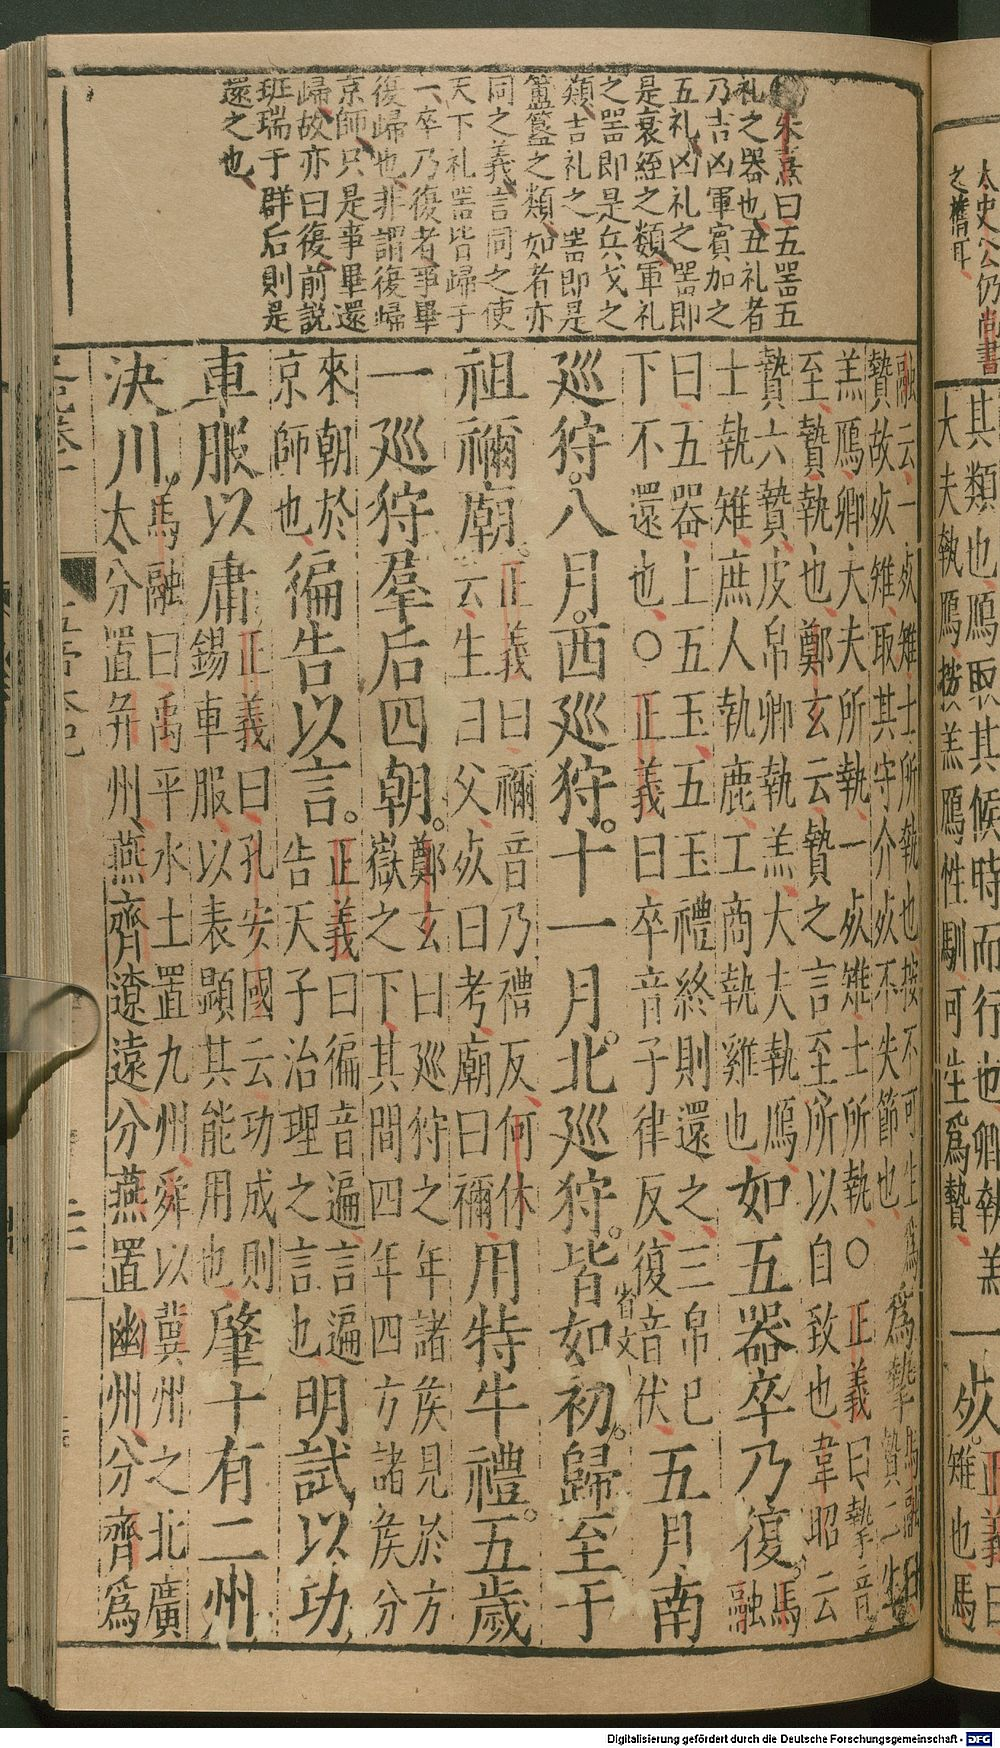 太史公仍尚書
之舊耳
其類也鴈取其候時而行也卿執羔
大夫執鴈按羔鴈性馴可生爲贄
一死
正義曰
雉也馬
朱熹曰五器五
礼之器也五礼者
乃吉凶軍賓加之
五礼凶礼之噐即
是衰絰之類軍礼
之噐即是兵戈之
類吉礼之噐即是
簠簋之類如者亦
同之義言同之使
天下礼噐皆歸于
一卒乃復者事畢
復歸也非謂復歸
京師只是事畢還
歸故亦曰復前説
班瑞于群后則是
還之也
融云一死雉士所執也按不可生爲
贄故死雉取其守介死不失節也
爲摯
馬融曰
贄二生
羔鴈卿大夫所執一死雉士所執○正義曰摯音
至贄執也鄭玄云贄之言至所以自致也韋昭云
贄六贄皮帛卿執羔大夫執鴈
士執雉庶人執鹿工商執雞也
如五器卒乃復。
馬
融
曰五器上五玉五玉禮終則還之三帛已
下不還也○正義曰卒音子律反復音伏
五月南
巡狩。八月。西巡狩。十一月。北巡狩。皆如初。歸至于
祖禰廟。
正義曰禰音乃禮反何休
云生曰父死曰考廟曰禰
用特牛禮。五歲
一巡狩羣后四朝。
鄭玄曰巡狩之年諸侯見於方
嶽之下其間四年四方諸侯分
來朝於
京師也
徧告以言。
正義曰徧音遍言遍
告天子治理之言也
明試以功
車服以庸
正義曰孔安國云功成則
錫車服以表顯其能用也
肇十有二州
決川。
馬融曰禹平水土置九州舜以兾州之北廣
太分置并州燕齊遼遠分燕置幽州分齊爲